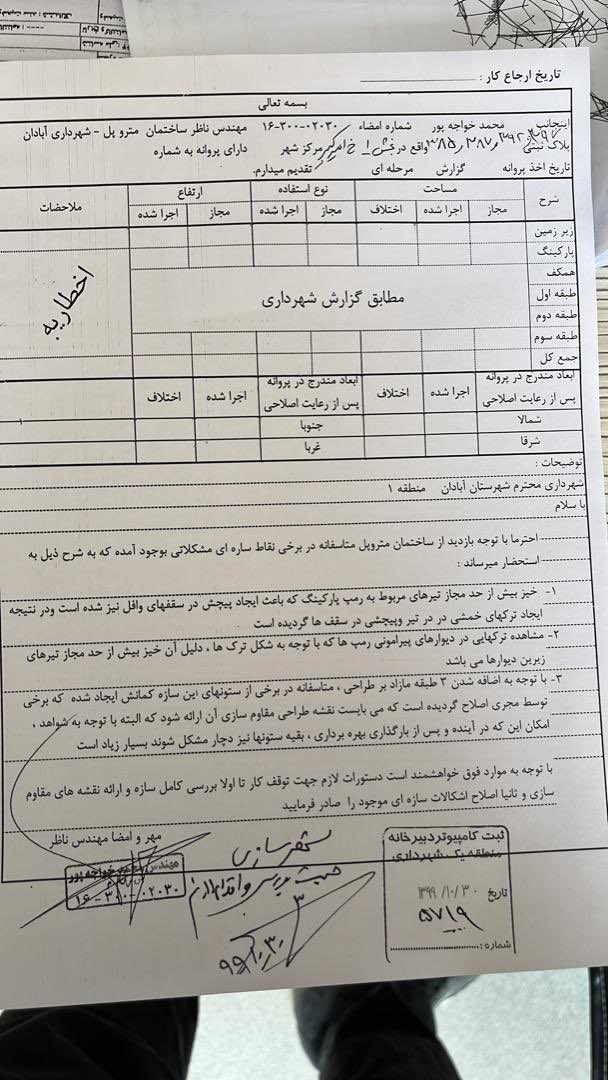 تاریخ ارجاع کار :
بسمه تعالی
اینجانب محمد خواجه پور شماره امضاء ۰۲۰۳۰-۳۰۰-۱۶ مهندس ناظر ساختمان مترو پل - شهرداری آبادان
پلاک ثبتی واقع در بخش ۱ خ امیرکبیر مرکز شهر دارای پروانه به شماره
تاریخ اخذ پروانه گزارش مرحله ای تقدیم میدارم.
شرح مساحت نوع استفاده ارتفاع ملاحضات
مجاز اجرا شده اختلاف مجاز اجرا شده مجاز اجرا شده
زیر زمین
پارکینگ
همکف
طبقه اول
مطابق گزارش شهرداری
اخطاریه
طبقه دوم
طبقه سوم
جمع کل
ابعاد مندرج در پروانه اجرا شده اختلاف ابعاد مندرج در پروانه اجرا شده اختلاف
پس از رعایت اصلاحی پس از رعایت اصلاحی
شمالا جنوبا
شرقا غربا
توضیحات :
شهرداری محترم شهرستان آبادان منطقه ۱
با سلام
احترما با توجه بازدید از ساختمان متروپل متاسفانه در برخی نقاط سازه ای مشکلاتی بوجود آمده که به شرح ذیل به
استحضار میرساند :
۱- خیز بیش از حد مجاز تیرهای مربوط به رمپ پارکینگ که باعث ایجاد پیچش در سقفهای وافل نیز شده است ودر نتیجه
ایجاد ترکهای خمشی در در تیر وپیچشی در سقف ها گردیده است
۲- مشاهده ترکهایی در دیوارهای پیرامونی رمپ ها که با توجه به شکل ترک ها ، دلیل آن خیز بیش از حد مجاز تیرهای
زیرین دیوارها می باشد
۳- با توجه به اضافه شدن ۳ طبقه مازاد بر طراحی ، متاسفانه در برخی از ستونهای این سازه کمانش ایجاد شده که برخی
توسط مجری اصلاح گردیده است که می بایست نقشه طراحی مقاوم سازی آن ارائه شود که البته با توجه به شواهد ،
امکان این که در آینده و پس از بارگذاری بهره برداری ، بقیه ستونها نیز دچار مشکل شوند بسیار زیاد است
با توجه به موارد فوق خواهشمند است دستورات لازم جهت توقف کار تا اولا بررسی کامل سازه و ارائه نقشه های مقاوم
سازی و ثانیا اصلاح اشکالات سازه ای موجود را صادر فرمایید
مهر و امضا مهندس ناظر
مهندس محمد خواجه پور
۱۶-۳۰۰-۰۲۰۳۰
جهت بررسی و اقدام لازم
۹۹/۱۰/۳۰
ثبت کامپیوتر دبیرخانه
منطقه یک شهرداری
تاریخ ۱۳۹۹/۱۰/۳۰
۵۷۱۹
شماره :